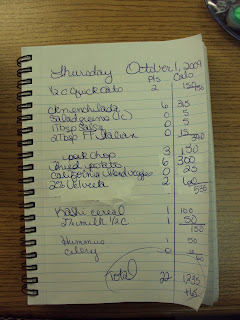 Thursday October 1, 2009
Pts Cals
1/2 c Quick Oats 2 150
6 315
Salad greens (1c) 0 5
1 Tbsp Salsa 0 5
2 Tbsp FF Italian 0 15
pork chop 3 130
potato 6 300
California blend vegges 0 25
2% Velveeta 2
Kashi cereal 1 100
2% milk 1/2 c 50
150
Hummus 1 50
celery 0
60
Total 22 1235